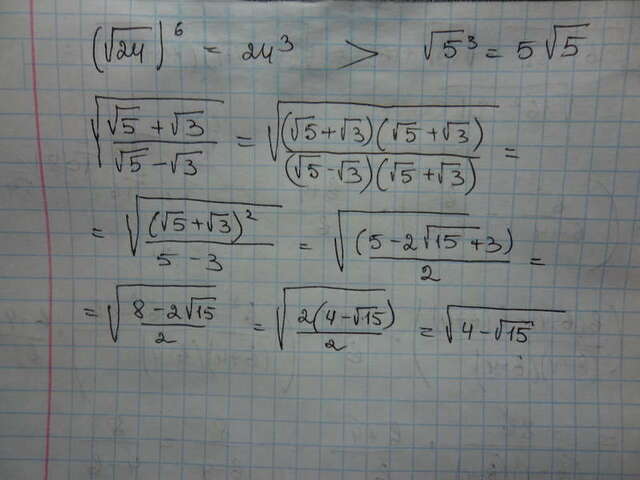 (√24)⁶ = 24³ > √5³ = 5√5
√((√5 + √3)/(√5 − √3)) = √(((√5 + √3)(√5 + √3))/((√5 − √3)(√5 + √3))) =
= √((√5 + √3)²/(5 − 3)) = √((5 − 2√15 + 3)/2) =
= √((8 − 2√15)/2) = √(2(4 − √15)/2) = √(4 − √15)